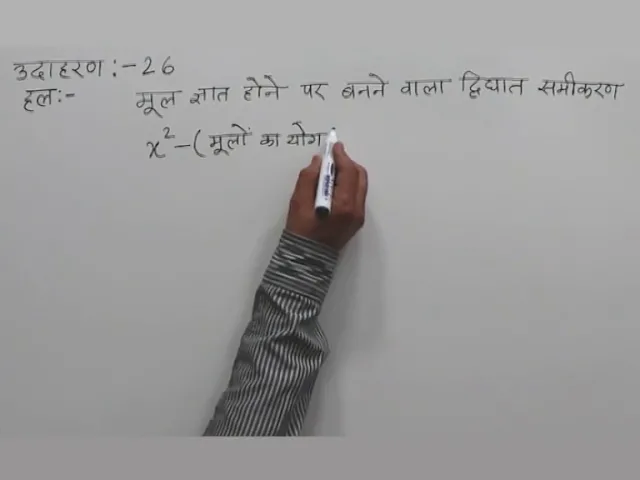 उदाहरण :- 26
हल:- मूल ज्ञात होने पर बनने वाला द्विघात समीकरण
x² - ( मूलों का योग